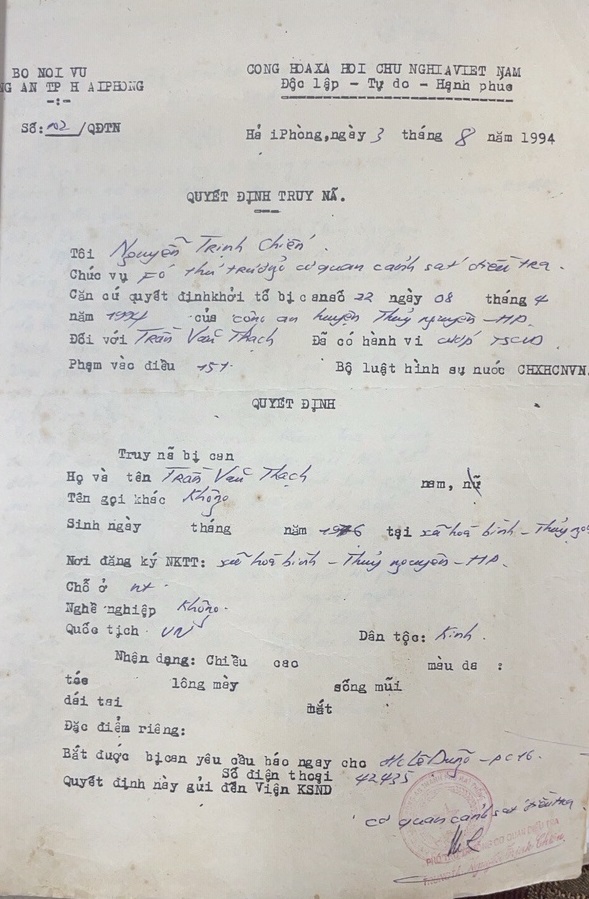 BO NOI VU
NG AN TP H AIPHONG
-:-
CONG HOAXA HOI CHU NGHIAVIET NAM
Độc lập - Tự do - Hạnh phuc
Số: /QĐTN
Hả iPhòng,ngày 3 tháng 8 năm 1994
QUYẾT ĐỊNH TRUY NÃ.
Tôi Nguyễn Trịnh Chiến
Chức vụ Fó thủ trưởng cơ quan cảnh sát điều tra.
Căn cứ quyết địnhkhởi tố bị cansố 22 ngày 08 tháng 4
năm 1994 của công an huyện Thủy nguyên - HP.
Đối với Trần Văn Thạch Đã có hành vi cướp TSCD
Phạm vào điều 151 Bộ luật hình sự nước CHXHCNVN.
QUYẾT ĐỊNH
Truy nã bị can
Họ và tên Trần Văn Thạch nam, nữ
Tên gọi khác Không
Sinh ngày tháng năm 1976 tại xã hoà bình - Thủy ng
Nơi đăng ký NKTT: xã hoà bình - Thủy nguyên - HP.
Chỗ ở nt.
Nghề nghiệp Không.
Quốc tịch VN
Dân tộc: Kinh.
Nhận dạng: Chiều cao màu da :
tóc lông mày sống mũi
dái tai mắt
Đặc điểm riêng:
Bắt được bịcan yêu cầu báo ngay cho Đ/c Lê Dũng - PC16.
Số điện thoại 42435
Quyết định này gửi đến Viện KSND
cơ quan cảnh sát điều tra